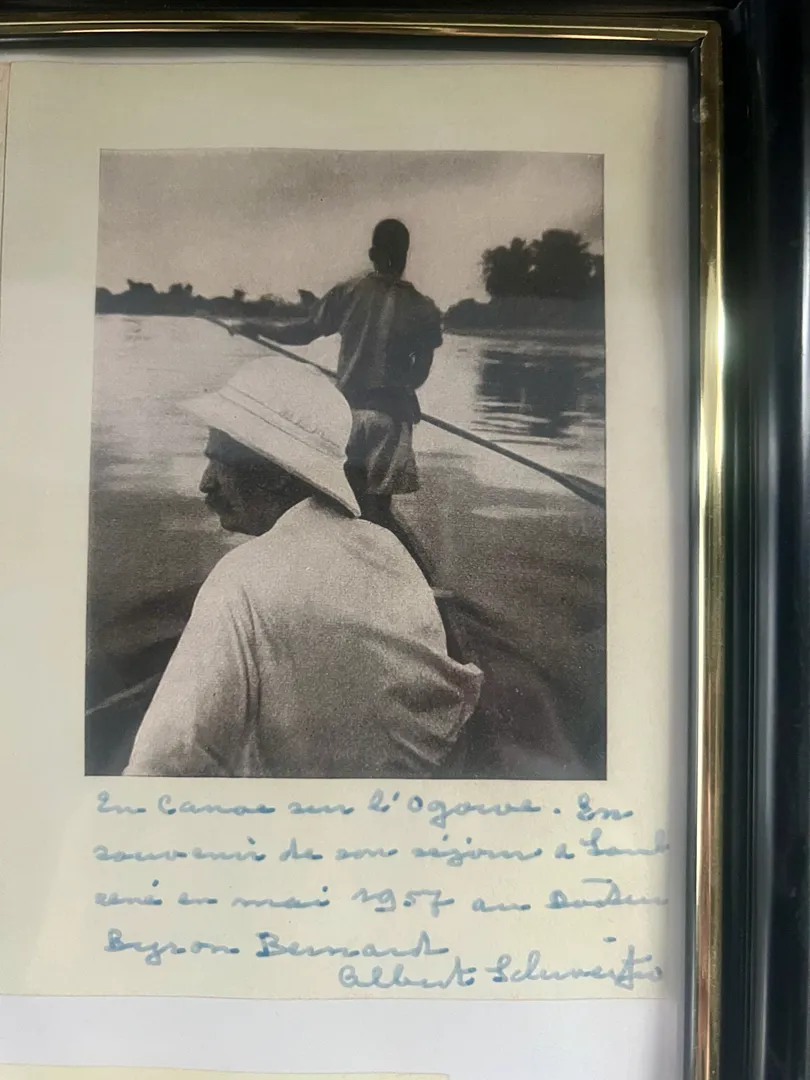 En Canoe sur l'Ogowe. En
souvenir de son séjour a Lamba
réné en mai 1957 au Docteur
Byron Bernard
Albert Schweitzer